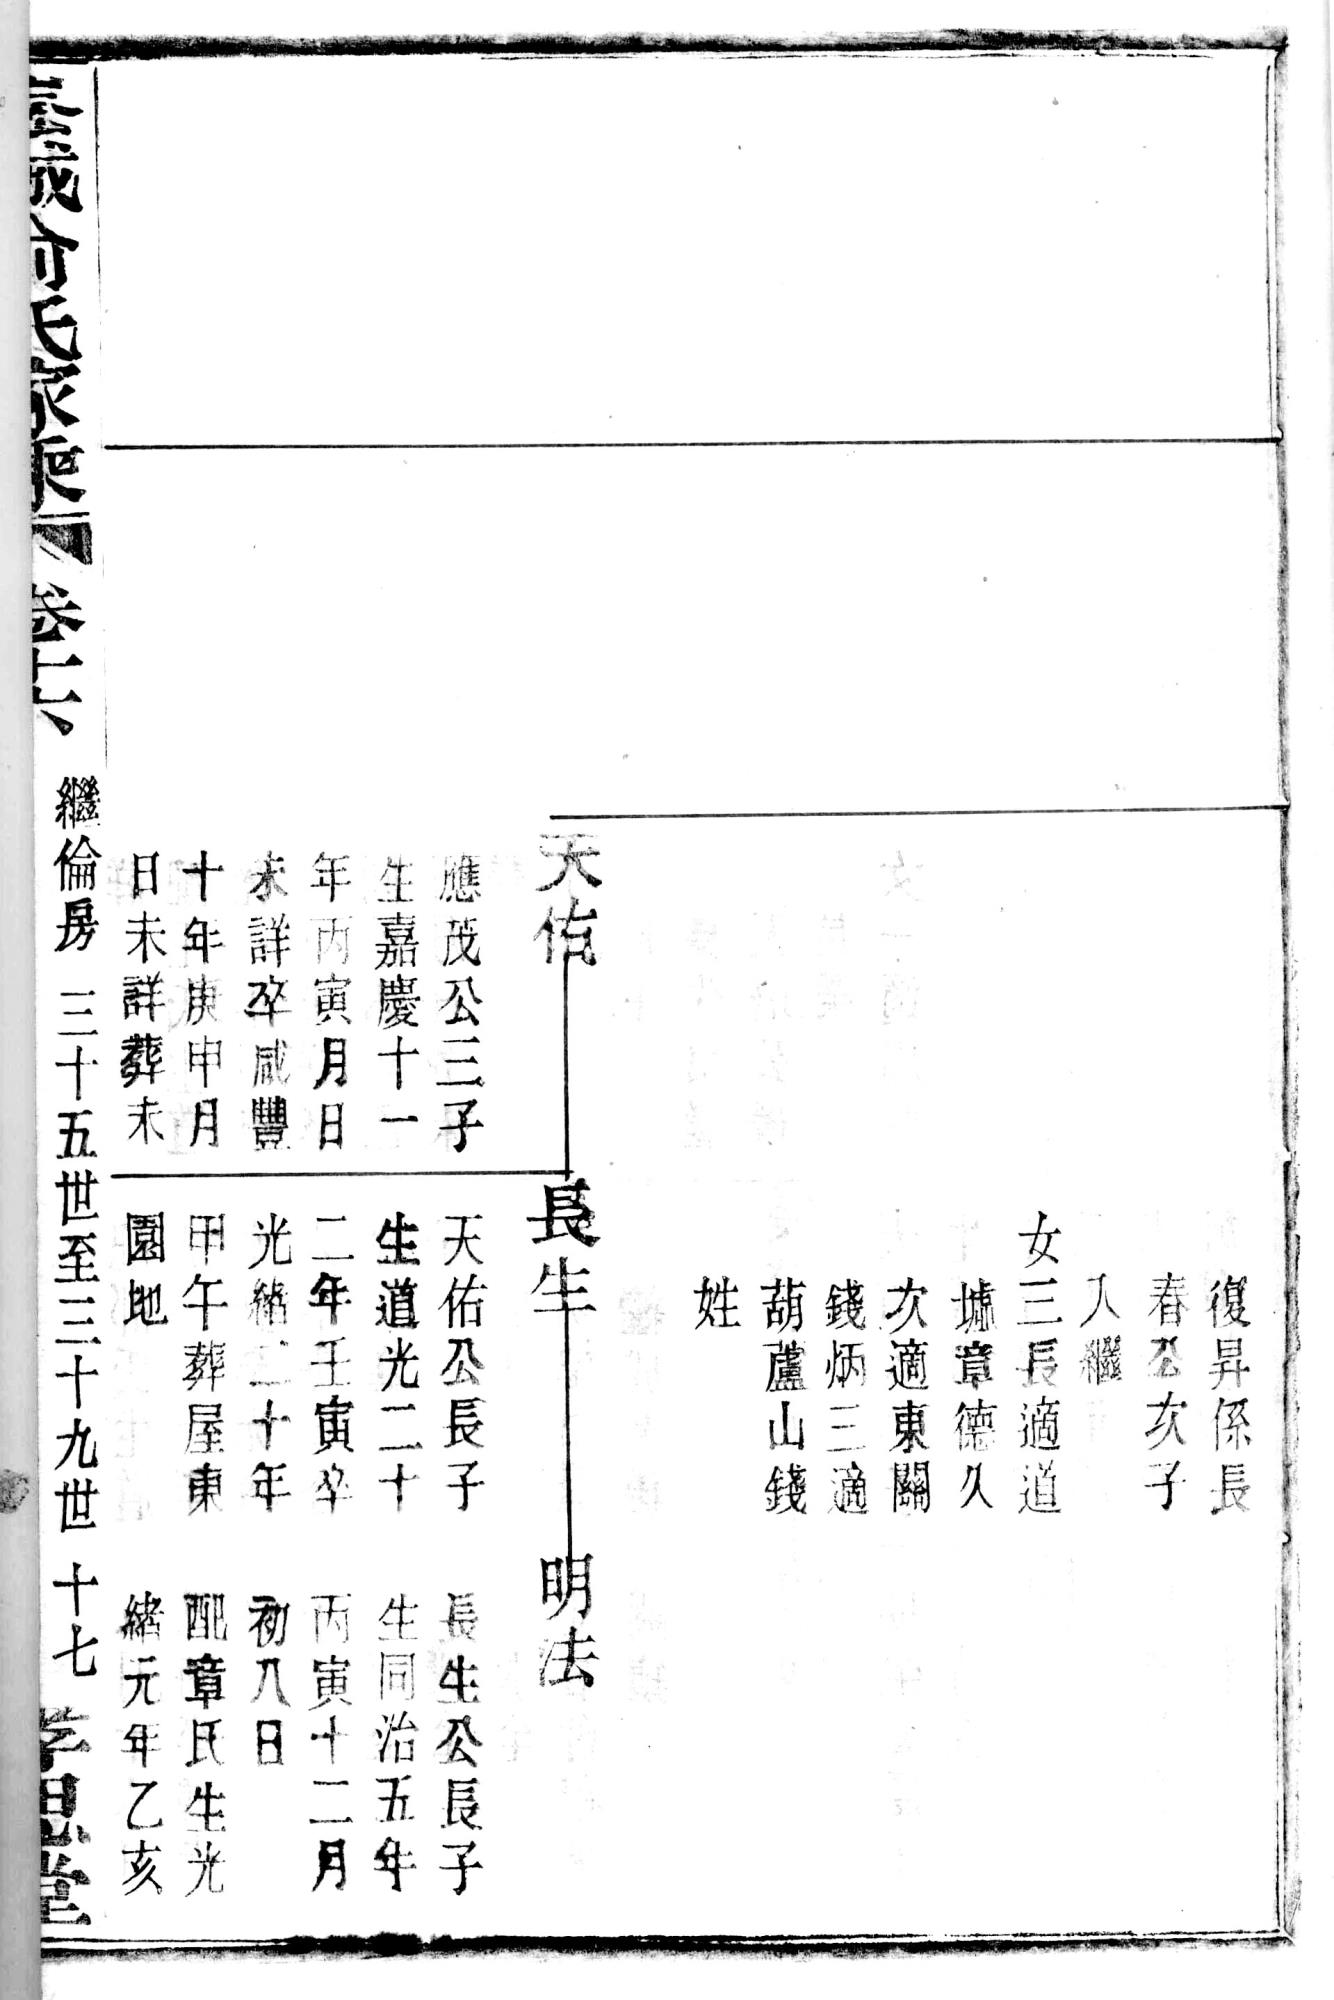 復昇係長
春公次子
入繼
女三長適道
墟章德久
次適東關
錢炳三適
葫蘆山錢
姓
天佑
應茂公三子
生嘉慶十一
年丙寅月日
未詳卒咸豐
十年庚申月
日未詳葬未
長生
天佑公長子
生道光二十
二年壬寅卒
光緒二十年
甲午葬屋東
園地
明法
長生公長子
生同治五年
丙寅十二月
初八日
配章氏生光
緒元年乙亥
俞氏家乘
卷十六
繼倫房 三十五世至三十九世 十七
孝思堂